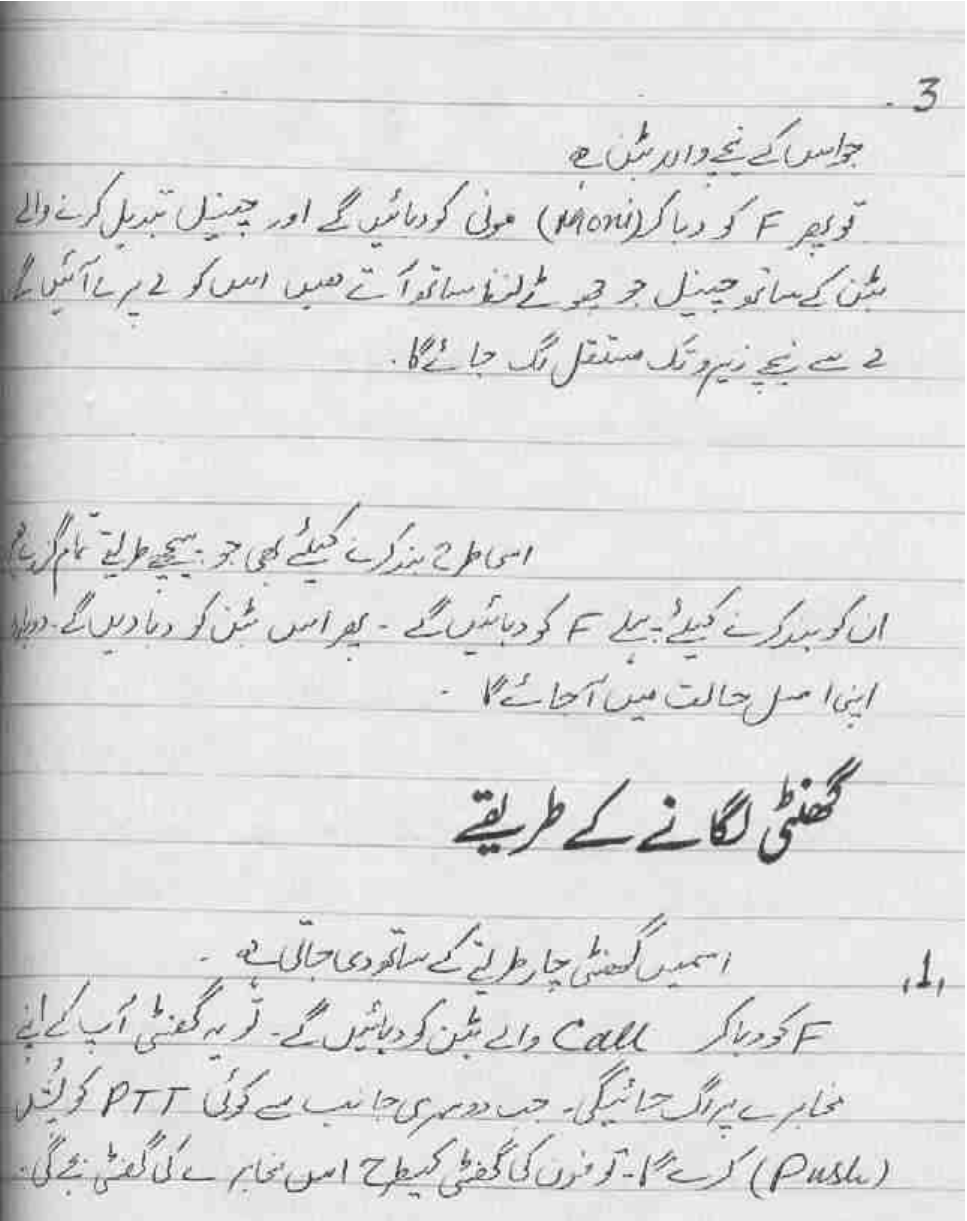 3.
جو اس کے نیچے والا بٹن ہے
تو پھر F کو دبا کر (Moni) مونی کو دبائیں گے اور چینل تبدیل کرنے والے
بٹن کے ساتھ چینل جو چھوٹے لفظ ساتھ آتے ھیں اس کو لے پر لے آئیں گے
لے سے نیچے زیرو تک مستقل لگ جائے گا۔
اسی طرح بند کرنے کیلئے بھی جو پیچھے طریقے تمام گزرے
ان کو بند کرنے کیلئے پہلے F کو دبائیں گے۔ پھر اس بٹن کو دبا دیں گے۔ دوبارہ
اپنی اصل حالت میں آجائے گا۔
گھنٹی لگانے کے طریقے
,1, اسمیں گھنٹی چار طریقے کے ساتھ دی جاتی ہے۔
F کو دبا کر Call والے بٹن کو دبائیں گے۔ تو یہ گھنٹی آپ کے اپنے
مخابرے پر لگ جائیگی۔ جب دوسری جانب سے کوئی PTT کو پُش
(Push) کرے گا۔ تو فون کی گھنٹی کیطرح اس مخابرے کی گھنٹی بجے گی۔